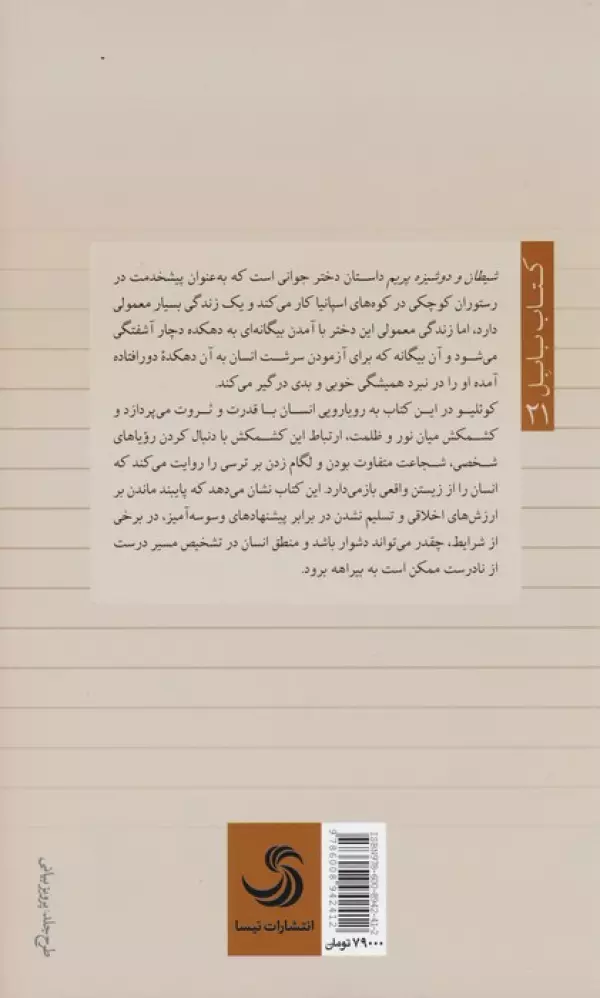 کتاب بابل
شیطان و دوشیزه پریم داستان دختر جوانی است که به‌عنوان پیشخدمت در
رستوران کوچکی در کوه‌های اسپانیا کار می‌کند و یک زندگی بسیار معمولی
دارد، اما زندگی معمولی این دختر با آمدن بیگانه‌ای به دهکده دچار آشفتگی
می‌شود و آن بیگانه که برای آزمودن سرشت انسان به آن دهکدهٔ دورافتاده
آمده او را در نبرد همیشگی خوبی و بدی درگیر می‌کند.
کوئلیو در این کتاب به رویارویی انسان با قدرت و ثروت می‌پردازد و
کشمکش میان نور و ظلمت، ارتباط این کشمکش با دنبال کردن رؤیاهای
شخصی، شجاعت متفاوت بودن و لگام زدن بر ترسی را روایت می‌کند که
انسان را از زیستن واقعی بازمی‌دارد. این کتاب نشان می‌دهد که پایبند ماندن بر
ارزش‌های اخلاقی و تسلیم نشدن در برابر پیشنهادهای وسوسه‌آمیز، در برخی
از شرایط، چقدر می‌تواند دشوار باشد و منطق انسان در تشخیص مسیر درست
از نادرست ممکن است به بیراهه برود.
ISBN978-600-8942-41-2
9786008942412
انتشارات تیسا
۷۹۰۰۰ تومان
طرح جلد: پرویز بیانی